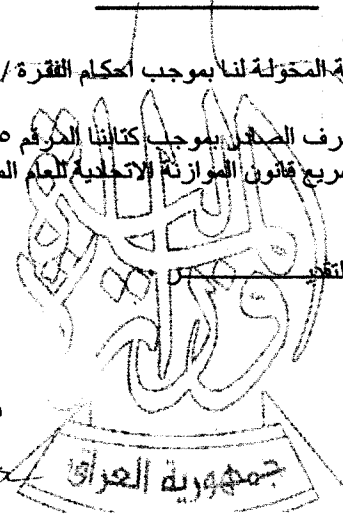 ية المخولة لنا بموجب احكام الفقرة /
رف الصادر بموجب كتابنا المرقم ٥
ريع قانون الموازنة الاتحادية للعام الم
لتقدير
جمهورية العراق